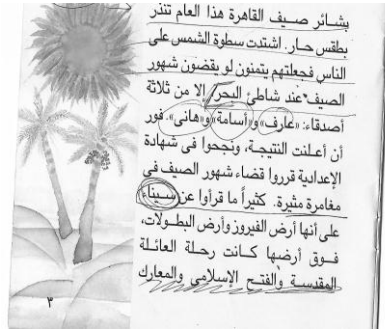 بشائر صيف القاهرة هذا العام تنذر
بطقس حار. اشتدت سطوة الشمس على
الناس فجعلتهم يتمنون لو يقضون شهور
الصيف عند شاطئ البحر إلا من ثلاثة
أصدقاء: «عارف» و«أسامة» و«هانى». فور
أن أعلنت النتيجة، ونجحوا فى شهادة
الإعدادية قرروا قضاء شهور الصيف فى
مغامرة مثيرة. كثيراً ما قرأوا عن سيناء
على أنها أرض الفيروز وأرض البطولات،
فوق أرضها كانت رحلة العائلة
المقدسة والفتح الإسلامى والمعارك
٣